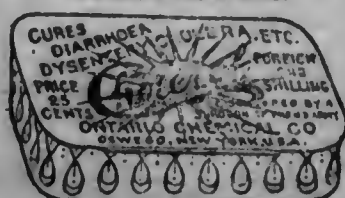 CURES
DIARRHOEA
DYSENTERY CHOLERA, ETC.
PRICE
25
CENTS
FOREIGN
SHILLING
BY A
ONTARIO CHEMICAL CO
OSWEGO, NEW YORK, U.S.A.